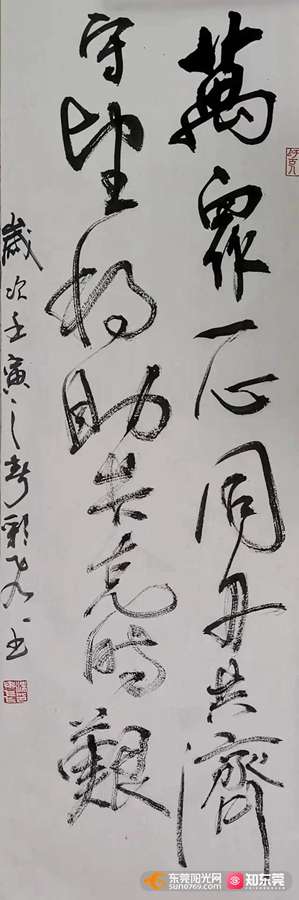 萬眾一心同舟共濟
守望相助共克時艱
歲次壬寅之春
东莞阳光网
sun0769.com
知东莞